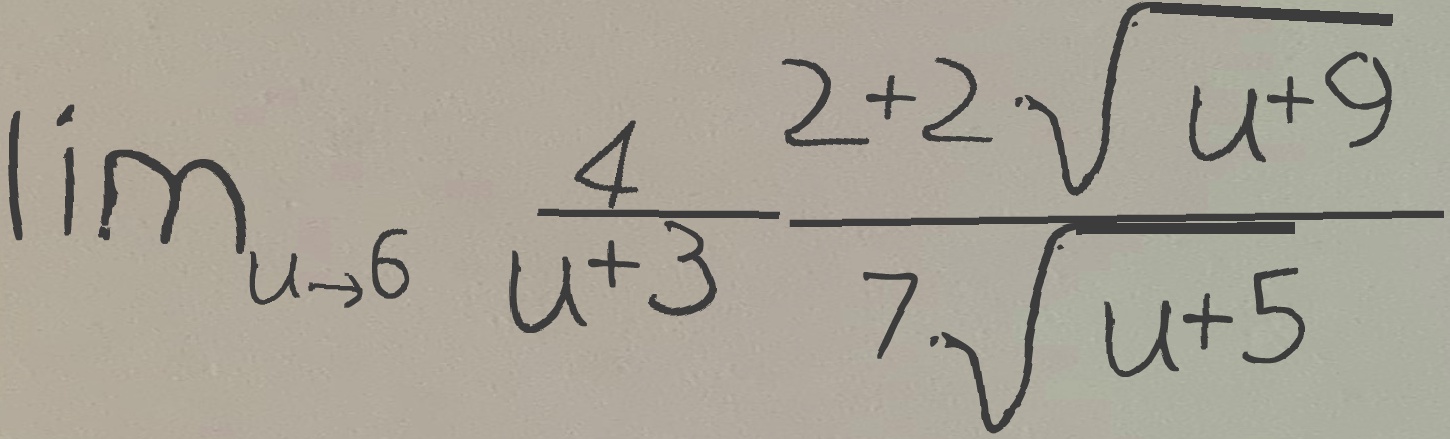 \lim_{u \to 6} \frac{4}{u+3} \frac{2+2 \cdot \sqrt{u+9}}{7 \cdot \sqrt{u+5}}